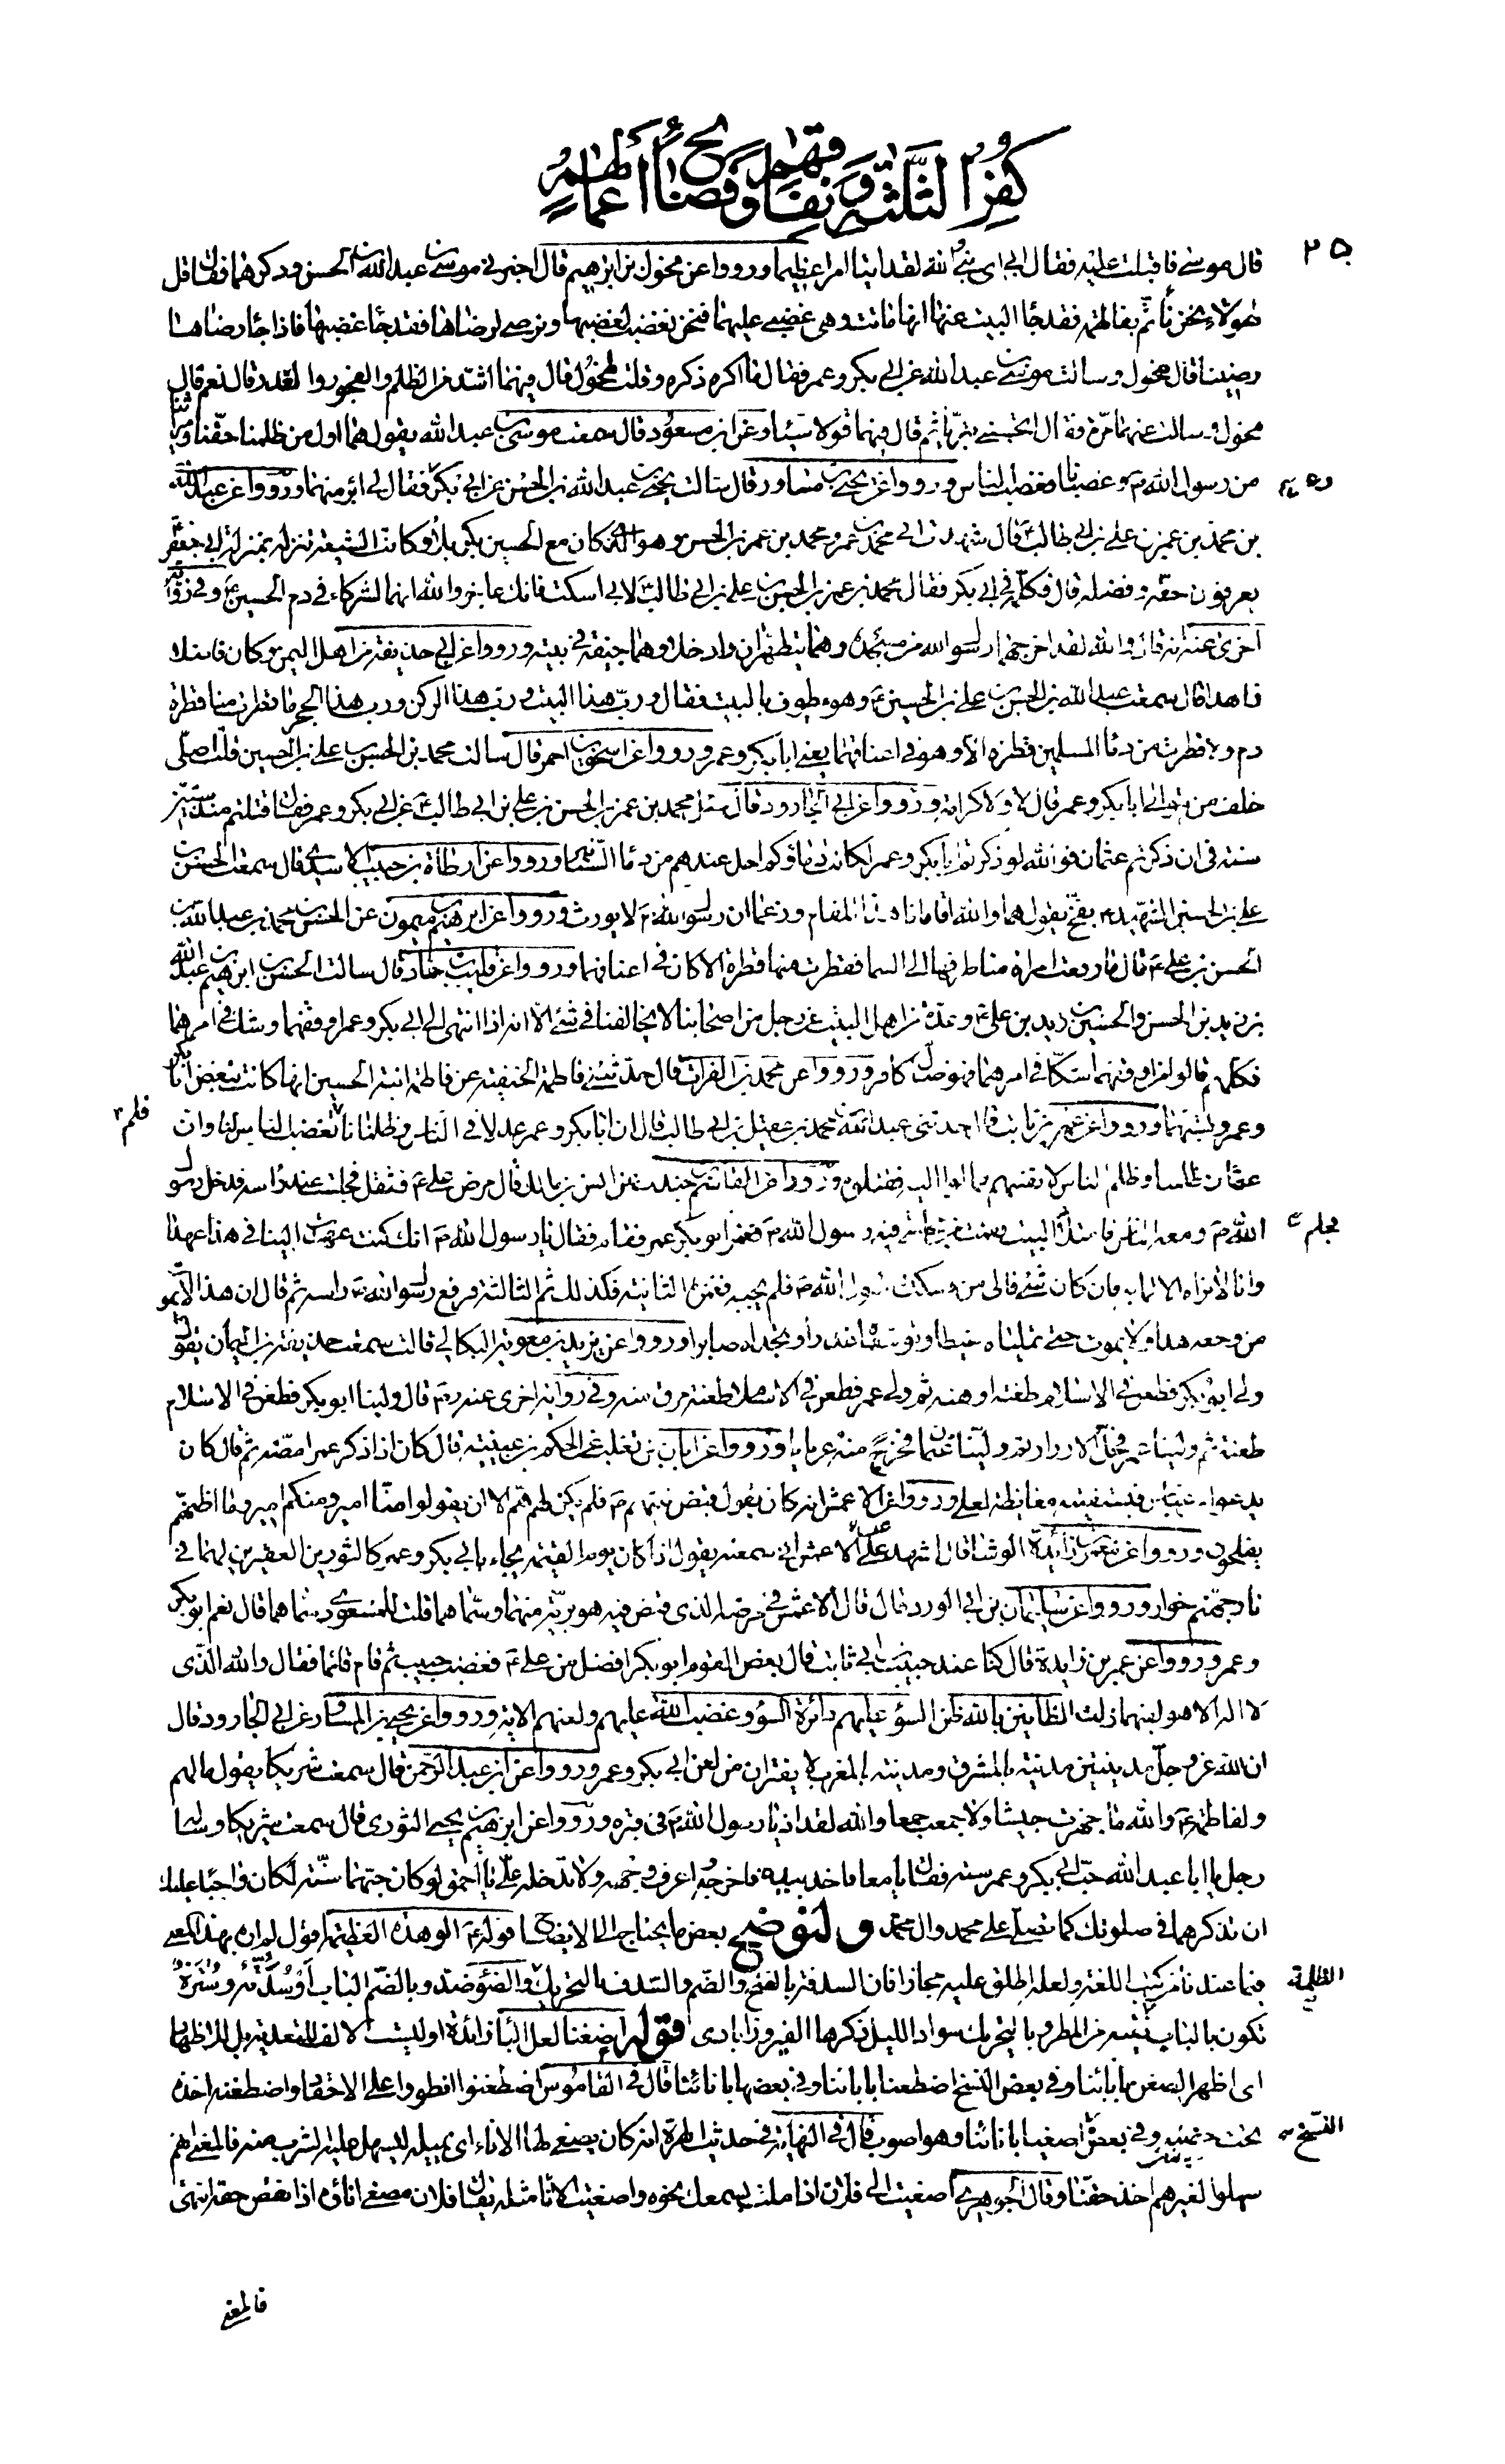 كفر الثلثة و نفاقهم و فضائح أعمالهم
٢٥٠
قال موسى فاقبلت عليه فقال لي اى بنى و الله لقد اتيا امرا عظيما ورووا عن مخول بن ابرهيم قال اخبرنى موسى بن عبد الله بن الحسن وذكرهما فقال قل
لهؤلاء نحن نأتم بفاطمة فقد جاء البيت عنها انها ماتت وهى غضبى عليهما فنحن نغضب لغضبها و نرضى لرضاها فقد جاء غضبها فاذا جاء رضاها
رضينا قال مخول وسالت موسى بن عبد الله عن ابى بكر وعمر فقال لى ما اكره ذكره وقلت لمخول قال فيهما اشد من الظلم والفجور والغدر قال نعم قال
مخول و سالت عنهما مرة فقال اتحسبنى بتريا ثم قال فيهما قولا سيئا وعن ابن مسعود قال سمعت موسى بن عبد الله يقول هما اول من ظلمنا حقنا وميراثنا
من رسول الله ص وغصبانا فغصب الناس ورووا عن يحيى بن مساور قال سالت يحيى بن عبد الله بن الحسن عن ابى بكر وعمر فقال لى ابرء منهما ورووا عن عبد الله
بن محمد بن عمر بن على بن ابى طالب قال شهدت ابى محمد بن عمر و محمد بن عمر بن الحسن وهو الذى كان مع الحسين بكربلا وكانت الشيعة تنزله بمنزلة ابى جعفر ع
يعرفون حقه و فضله قال فكلمه فى ابى بكر فقال محمد بن عمر بن الحسن بن على بن ابى طالب لابى اسكت فانك عاجز والله انهما لشركاء فى دم الحسين ع وفى رواية
اخرى عنه انه قال والله لقد اخرجهما رسول الله من مسجده وهما يتطهران وادخلا وهما جيفة فى بيته ورووا عن ابى حذيفة من اهل اليمن وكان فاضلا
زاهدا قال سمعت عبد الله بن الحسن بن على بن الحسين ع وهو يطوف بالبيت فقال ورب هذا البيت ورب هذا الركن ورب هذا الحجر ما قطرت منا قطرة
دم ولا قطرت من دماء المسلمين قطرة الا وهو فى اعناقهما يعنى ابا بكر وعمر ورووا عن اسحق بن احمر قال سالت محمد بن الحسن بن على بن الحسين قلت اصلى
خلف من يتوالى ابا بكر وعمر قال لا ولا كرامة ورووا عن ابى الجارود قال سئل محمد بن عمر بن الحسن بن على بن ابى طالب ع عن ابى بكر وعمر فقال قتلتم منذ ستين
سنة فى ان ذكرتم عثمان فوالله لو ذكرتم ابا بكر وعمر لكانت دماؤكم احل عندهم من دماء السنانير ورووا عن ارطاة بن حبيب الاسدى قال سمعت الحسن بن
على بن الحسين الشهيد بفخ يقول هما والله اقامانا هذا المقام وزعما ان رسول الله ص لا يورث ورووا عن ابرهيم بن ميمون عن الحسن بن محمد بن عبد الله بن
الحسن بن على ع قال ما رفعت امراة منا طرفها الى السماء فقطرت منها قطرة الا كان فى اعناقهما ورووا عن قليب بن حماد قال سالت الحسن بن ابرهيم بن عبد الله
بن زيد بن الحسن والحسين بن زيد بن على ع وعدة من اهل البيت عن رجل من اصحابنا لا يخالفنا فى شىء الا انه اذا انتهى الى ابى بكر وعمر اوقفهما وشك فى امرهما
فكلهم قالوا من اوقفهما شكا فى امرهما فهو ضال كافر ورووا عن محمد بن الفرات قال حدثتنى فاطمة الحنفية عن فاطمة ابنة الحسين انها كانت تبغض ابا بكر
وعمر وتسبهما ورووا عن عمر بن ثابت قال حدثنى عبد الله بن محمد بن عقيل بن ابى طالب قال ان ابا بكر وعمر عدلا فى الناس وظلمانا فلم تغضب الناس لنا وان
عثمان ظلمنا وظلم الناس فغضبت الناس لانفسهم فمالوا اليه فقتلوه ورووا عن القاسم بن جندب عن انس بن مالك قال مرض على ع فثقل فجلست عند راسه فدخل رسول
الله ص ومعه الناس فامتلأ البيت فقمت من مجلسى فجلس فيه رسول الله ص فغمز ابو بكر عمر فقام فقال يا رسول الله ص انك كنت عهدت الينا فى هذا عهدا
وانا لا نراه الا لما به فان كان شىء فالى من فسكت رسول الله ص فلم يجبه فغمزه الثانية فكذلك ثم الثالثة فرفع رسول الله ص راسه ثم قال ان هذا لا يموت
من وجعه هذا ولا يموت حتى تملياه غيظا وتوسعاه غدرا وتجداه صابرا ورووا عن يزيد بن معوية البكالى قالت سمعت حذيفة بن اليمان يقول
ولى ابو بكر فطعن فى الاسلام طعنة اوهنه ثم ولى عمر فطعن فى الاسلام طعنة مرق منه وفى رواية اخرى عنه رض قال ولينا ابو بكر فطعن فى الاسلام
طعنة ثم ولينا عمر فحل الازرار ثم ولينا عثمان فخرج منه عريانا ورووا عن ابان بن تغلب عن الحكم بن عيينة قال كان اذا ذكر عمر امضه ثم قال كان
يدعو ابن عباس فيستفتيه مغايظة لعلى ع ورووا عن الاعمش انه كان يقول قبض نبيهم ص فلم يكن لهم هم الا ان يقولوا منا امير ومنكم امير وما اظنهم
يفلحون ورووا عن معمر بن زائدة الوشاء قال اشهد على الاعمش انى سمعته يقول اذا كان يوم القيمة يجاء بابى بكر وعمر كالثورين العقيرين لهما فى
نار جهنم خوار ورووا عن سليمان بن ابى الورد قال قال الاعمش فى مرضه الذى قبض فيه هو برىء منهما وسماهما قلت للمسعودى سماهما قال نعم ابو بكر
وعمر ورووا عن عمر بن زايدة قال كنا عند حبيب بن ابى ثابت قال بعض القوم ابو بكر افضل من على ع فغضب حبيب ثم قام قائما فقال والله الذى
لا اله الا هو لفيهما نزلت الظانين بالله ظن السوء عليهم دائرة السوء وغضب الله عليهم ولعنهم الاية ورووا عن يحيى بن المساور عن ابى الجارود قال
ان لله عز وجل مدينتين مدينة بالمشرق ومدينة بالمغرب لا يفتران من لعن ابى بكر وعمر ورووا عن ابن عبد الرحمن قال سمعت شريكا يقول مالهم
ولفاطمة ع والله ما جهزت جيشا ولا جمعت جمعا والله لقد اذيا رسول الله ص فى قبره ورووا عن ابرهيم بن يحيى الثورى قال سمعت شريكا وساله
رجل يا ابا عبد الله حب ابى بكر وعمر سنة فقال يا معافا خذ بيده فاخرجه واعرف وجهه ولا تدخله على يا احمق لو كان حبهما سنة لكان واجبا عليك
ان تذكرهما فى صلوتك كما تصلى على محمد وال محمد ولنوضح بعض ما يحتاج الى الايضاح قوله ع الوهذه العظيمة قول لم اره بهذا المعنى
فيما عندنا من كتب اللغة ولعله اطلق عليه مجازا فان السدفة بالفتح والضم والسدف بالتحريك الظلمة والضوء ضد وبالضم الباب او سدته وسترة
تكون بالباب تقيه من المطر وبالتحريك سواد الليل ذكرها الفيروزابادى قوله اضغنا لعل الباء زائدة او ليست الالف للتعدية بل للاظهار
اى اظهر الضغن بابائنا وفى بعض النسخ اضطغنا بابائنا وفى بعضها بانائنا قال فى القاموس اضطغنوا انطووا على الاحقاد واضطغنه اخذه
تحت حضنه وفى بعض النسخ اصغيا بانائنا وهو اصوب قال فى النهاية فى حديث الهرة انه كان يصغى لها الاناء اى يميله ليسهل عليها الشرب منه فالمعنى انهم
سهلوا لغيرهم اخذ حقنا وقال الجوهرى اصغيت الى فلان اذا ملت بسمعك نحوه واصغيت الاناء املته يقال فلان مصغى اناؤه اذا نقص حقه انتهى
فالمعنى